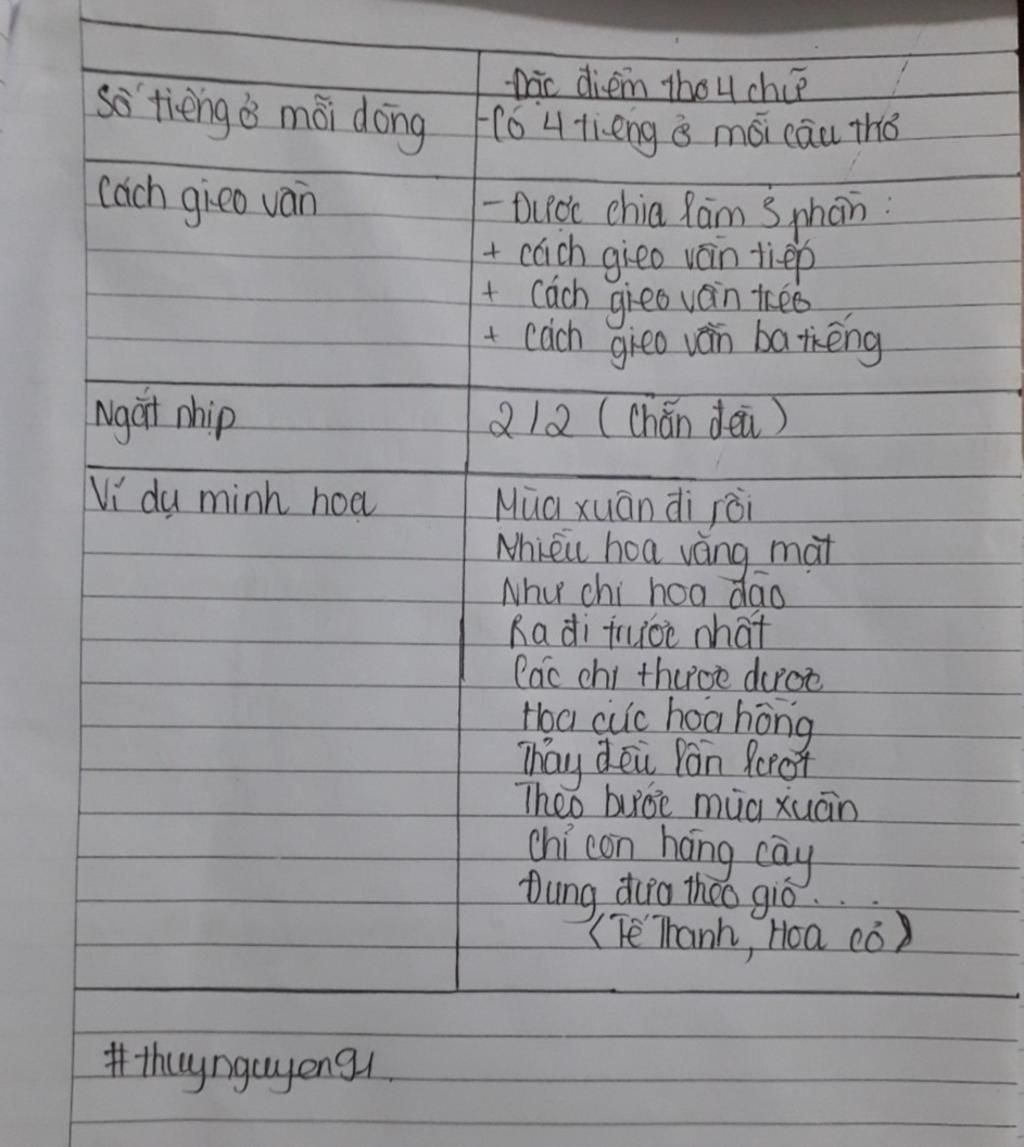 -Đặc điểm thơ 4 chữ
Số tiếng ở mỗi dòng
-Có 4 tiếng ở mỗi câu thơ
Cách gieo vần
- Được chia làm 3 phần:
+ cách gieo vần tiếp
+ Cách gieo vần tréo
+ Cách gieo vần ba tiếng
Ngắt nhịp
2/2 (Chẵn đều)
Ví dụ minh hoạ
Mùa xuân đi rồi
Nhiều hoa vắng mặt
Như chị hoa đào
Ra đi trước nhất
Các chị thược dược
Hoa cúc hoa hồng
Thảy đều lần lượt
Theo bước mùa xuân
Chỉ còn hàng cây
Đung đưa theo gió....
(Tế Thanh, Hoa cỏ)
#thuynguyen91.